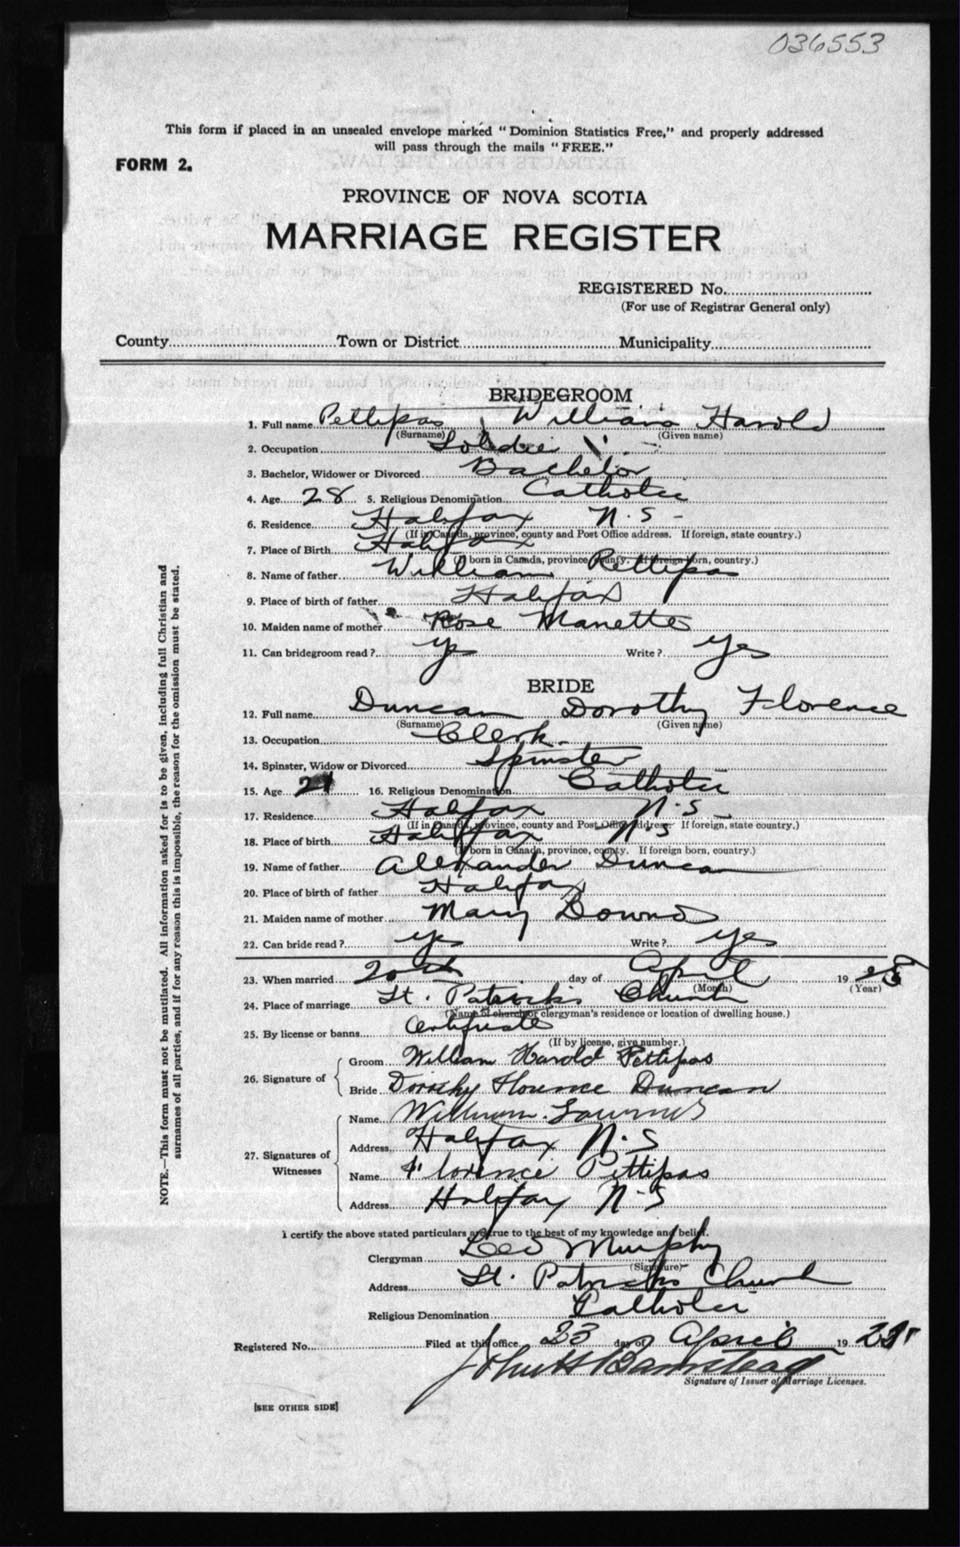 036553
This form if placed in an unsealed envelope marked "Dominion Statistics Free," and properly addressed
will pass through the mails "FREE."
FORM 2.
PROVINCE OF NOVA SCOTIA
MARRIAGE REGISTER
REGISTERED No.
(For use of Registrar General only)
County Town or District Municipality
BRIDEGROOM
1. Full name Pettipas William Harold
(Surname) (Given name)
2. Occupation Soldier
3. Bachelor, Widower or Divorced Bachelor
4. Age 28 5. Religious Denomination Catholic
6. Residence Halifax N.S-
(If in Canada, province, county and Post Office address. If foreign, state country.)
7. Place of Birth Halifax
(If born in Canada, province county. If foreign born, country.)
8. Name of father William Pettipas
9. Place of birth of father Halifax
10. Maiden name of mother Rose Manette
11. Can bridegroom read? yes Write? yes
BRIDE
12. Full name Duncan Dorothy Florence
(Surname) (Given name)
13. Occupation Clerk
14. Spinster, Widow or Divorced Spinster
15. Age 16. Religious Denomination Catholic
17. Residence Halifax N.S
(If in Canada, province, county and Post Office address If foreign, state country.)
18. Place of birth Halifax N S
(If born in Canada, province, county. If foreign born, country.)
19. Name of father Alexander Duncan
20. Place of birth of father Halifax
21. Maiden name of mother Mary Downs
22. Can bride read? yes Write? yes
23. When married 20th day of April 19
(Month) (Year)
24. Place of marriage St. Patrick's Church
(Name of church or clergyman's residence or location of dwelling house.)
25. By license or banns Certificate
(If by license, give number.)
26. Signature of Groom William Harold Pettipas
Bride Dorothy Florence Duncan
27. Signatures of Witnesses Name William
Address Halifax N.S
Name Florence Pettipas
Address Halifax N-S
I certify the above stated particulars are true to the best of my knowledge and belief.
Clergyman Leo Murphy
(Signature)
Address St. Patricks Church
Religious Denomination Catholic
Registered No. Filed at this office 23 day of April 19
John H Barnstead
Signature of Issuer of Marriage Licenses.
[SEE OTHER SIDE]
NOTE.—This form must not be mutilated. All information asked for is to be given, including full Christian and
surnames of all parties, and if for any reason this is impossible, the reason for the omission must be stated.